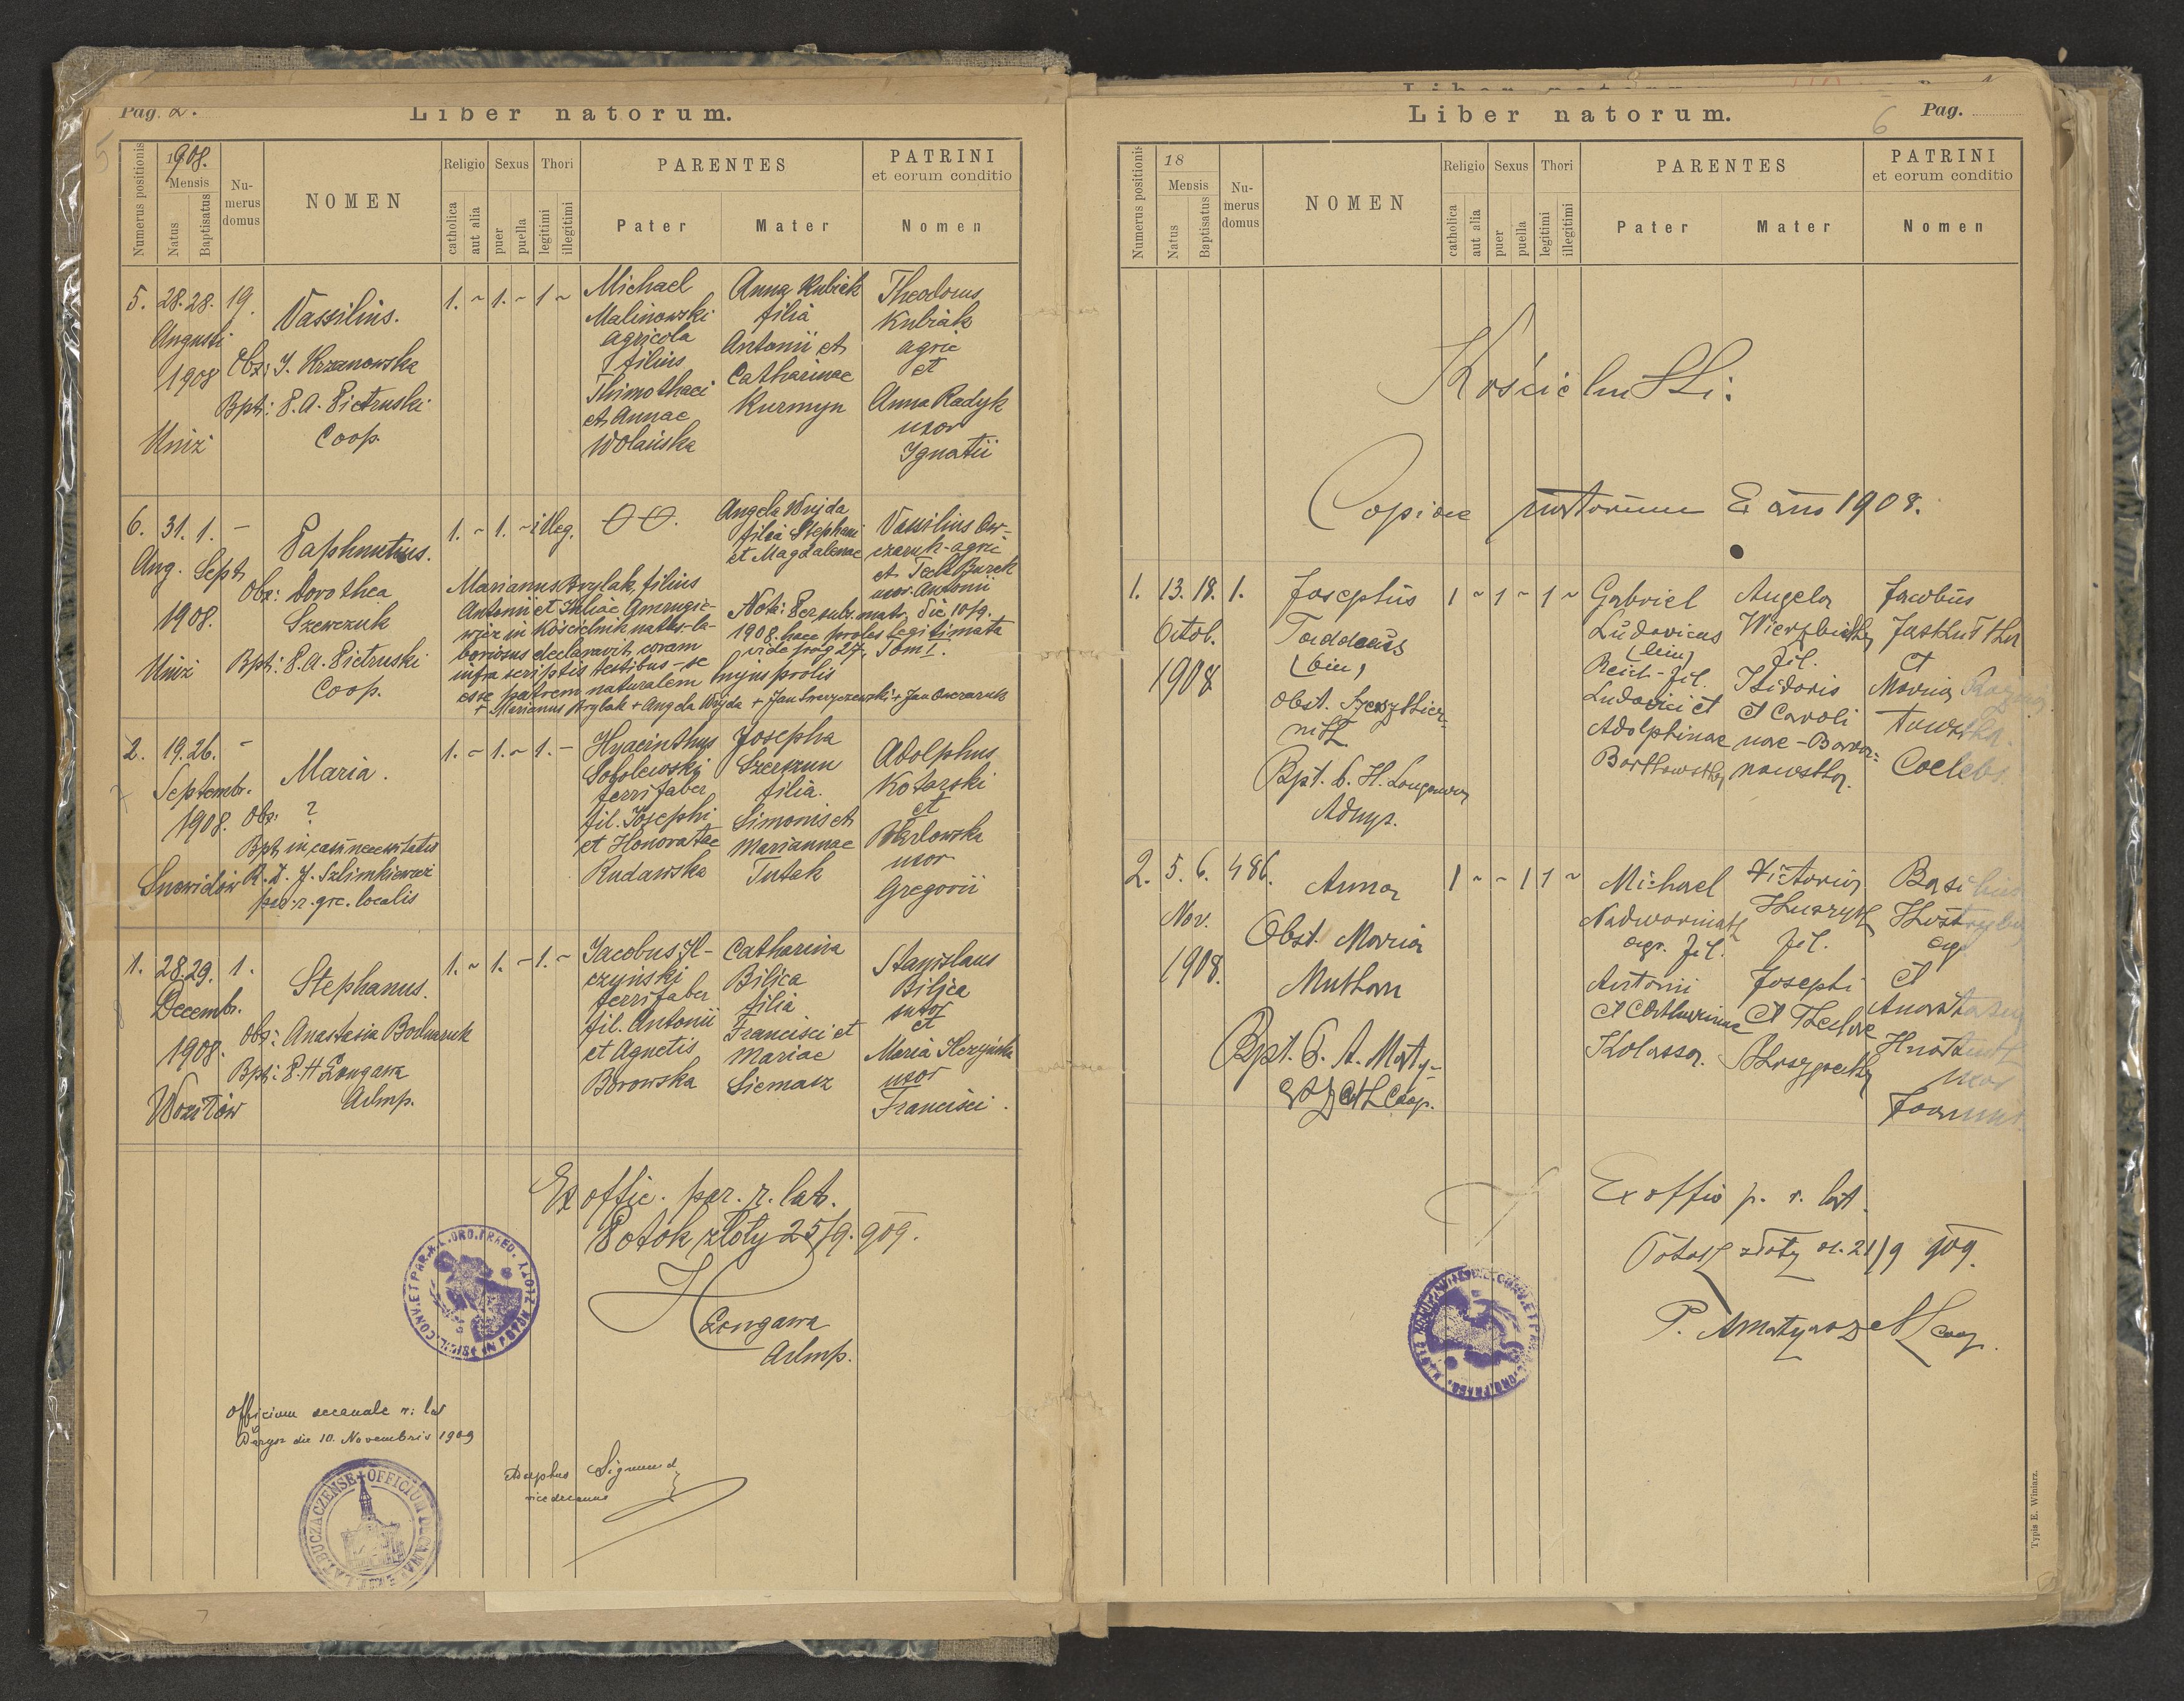 Pag. 2.
Liber natorum.
5
Numerus positionis
1908.
Mensis
Natus
Baptisatus
Nu-
merus
domus
NOMEN
Religio
catholica
aut alia
Sexus
puer
puella
Thori
legitimi
illegitimi
PARENTES
Pater
Mater
PATRINI
et eorum conditio
Nomen
5. 28. 28. 19.
Augusti
1908
Uniż
Vassilius.
Obs: J. Krzanowska
Bpt: P. A. Pietruski
Coop.
1. ~ 1. ~ 1 ~
Michael
Malinowski
agricola
filius
Thimothaei
et Annae
Wolańska
Anna Kubiek
filia
Antonii et
Catharinae
Kurmyn
Theodorus
Kubiak
agric
et
Anna Radyk
uxor
Ignatii
6. 31. 1. –
Aug. Sept
1908.
Uniż
Paphnutius.
Obs: Dorothea
Szewczuk
Bpt: P. A. Pietruski
Coop.
1. ~ 1. ~ illeg.
Angela Wujda
filia Stephani
et Magdalenae
Vassilius Ow-
czaruk - agric
et Tecla Burek
uxor Antonii
Marianus Brylak, filius
Antonii et Juliae
in Kościelnik natus - la-
boriosus declaravit coram
infra scriptis testibus - se
esse patrem naturalem hujus prolis
+ Marianus Brylak + Angela Wujda + Jan + Jan Owczaruk
Nota: Per subs. mat. die 10/9.
1908. haec proles legitimata
vide pag 27. Tom I.
2. 19. 26. –
Septembr.
1908.
Snowidów
Maria.
Obs: ?
Bpt: in casu necessitatis
R. D. J. Szlimkiewicz
par. r. grc. localis
1. ~ 1. ~ 1. –
Hyacinthus
Sobolewski
ferrifaber
fil. Josephi
et Honoratae
Rudawska
Josepha
Szerszun
filia.
Simonis et
Mariannae
Tutak
Adolphus
Kotarski
et
uxor
Gregorii
1. 28. 29. 1.
Decembr.
1908.
Woziłów
Stephanus.
Obs: Anastasia Bodnaruk
Bpt: P. H Longawa
Admp.
1. ~ 1. ~ 1. ~
Jacobus Il-
czyński
ferrifaber
fil. Antonii
et Agnetis
Borowska
Catharina
Bilica
filia
Francisci et
Mariae
Siemasz
Stanislaus
Bilica
sutor
et
Maria Ilczyńska
uxor
Francisci.
Ex offic. par. r. lat.
Potok złoty 25/9. 909.
H Longawa
Admp.
SIGILL. CONV. ET PAR. R. L. ORD. PRAED. IN POTOK ZŁOTY
Officium decanale r: lat
Barysz die 10. Novembris 1909
Adolphus Sigmund
vicedecanus
OFFICIUM DECANALE LAT. BUCZACZENSE
Liber natorum.
6
Pag.
Numerus positionis
18
Mensis
Natus
Baptisatus
Nu-
merus
domus
NOMEN
Religio
catholica
aut alia
Sexus
puer
puella
Thori
legitimi
illegitimi
PARENTES
Pater
Mater
PATRINI
et eorum conditio
Nomen
Kościelniki:
Copiae natorum E ano 1908.
1. 13. 18. 1.
Octob.
1908
Josephus
Taddaeus
(bin)
obst.
Bpt. P. H. Longawa
Admp.
1 ~ 1 ~ 1 ~
Gabriel
Ludovicus
(bin)
Reich - fil.
Ludovici et
Adolphinae
Bartkowska
Angela
Wierzbicka
fil.
Isidoris
et Caroli
nae - Bara-
nowska.
Jacobus
et
Maria
Coelebs
2. 5. 6. 486.
Nov.
1908.
Anna
Obst. Maria
Muthan
Bpt. P. A. Maty-
aszek Coop.
1 ~ ~ 1 1 ~
Michael
Nadworniak
agr. fil.
Antonii
et Catharinae
Kolassa.
Victoria
fil.
Josephi
et Theclae
Basilius
agr
et
Anastasia
uxor
Joannis.
Ex offio p. r. lat.
Potok złoty d. 21/9 909.
P. A Matyaszek Coop.
Typis E. Winiarz.